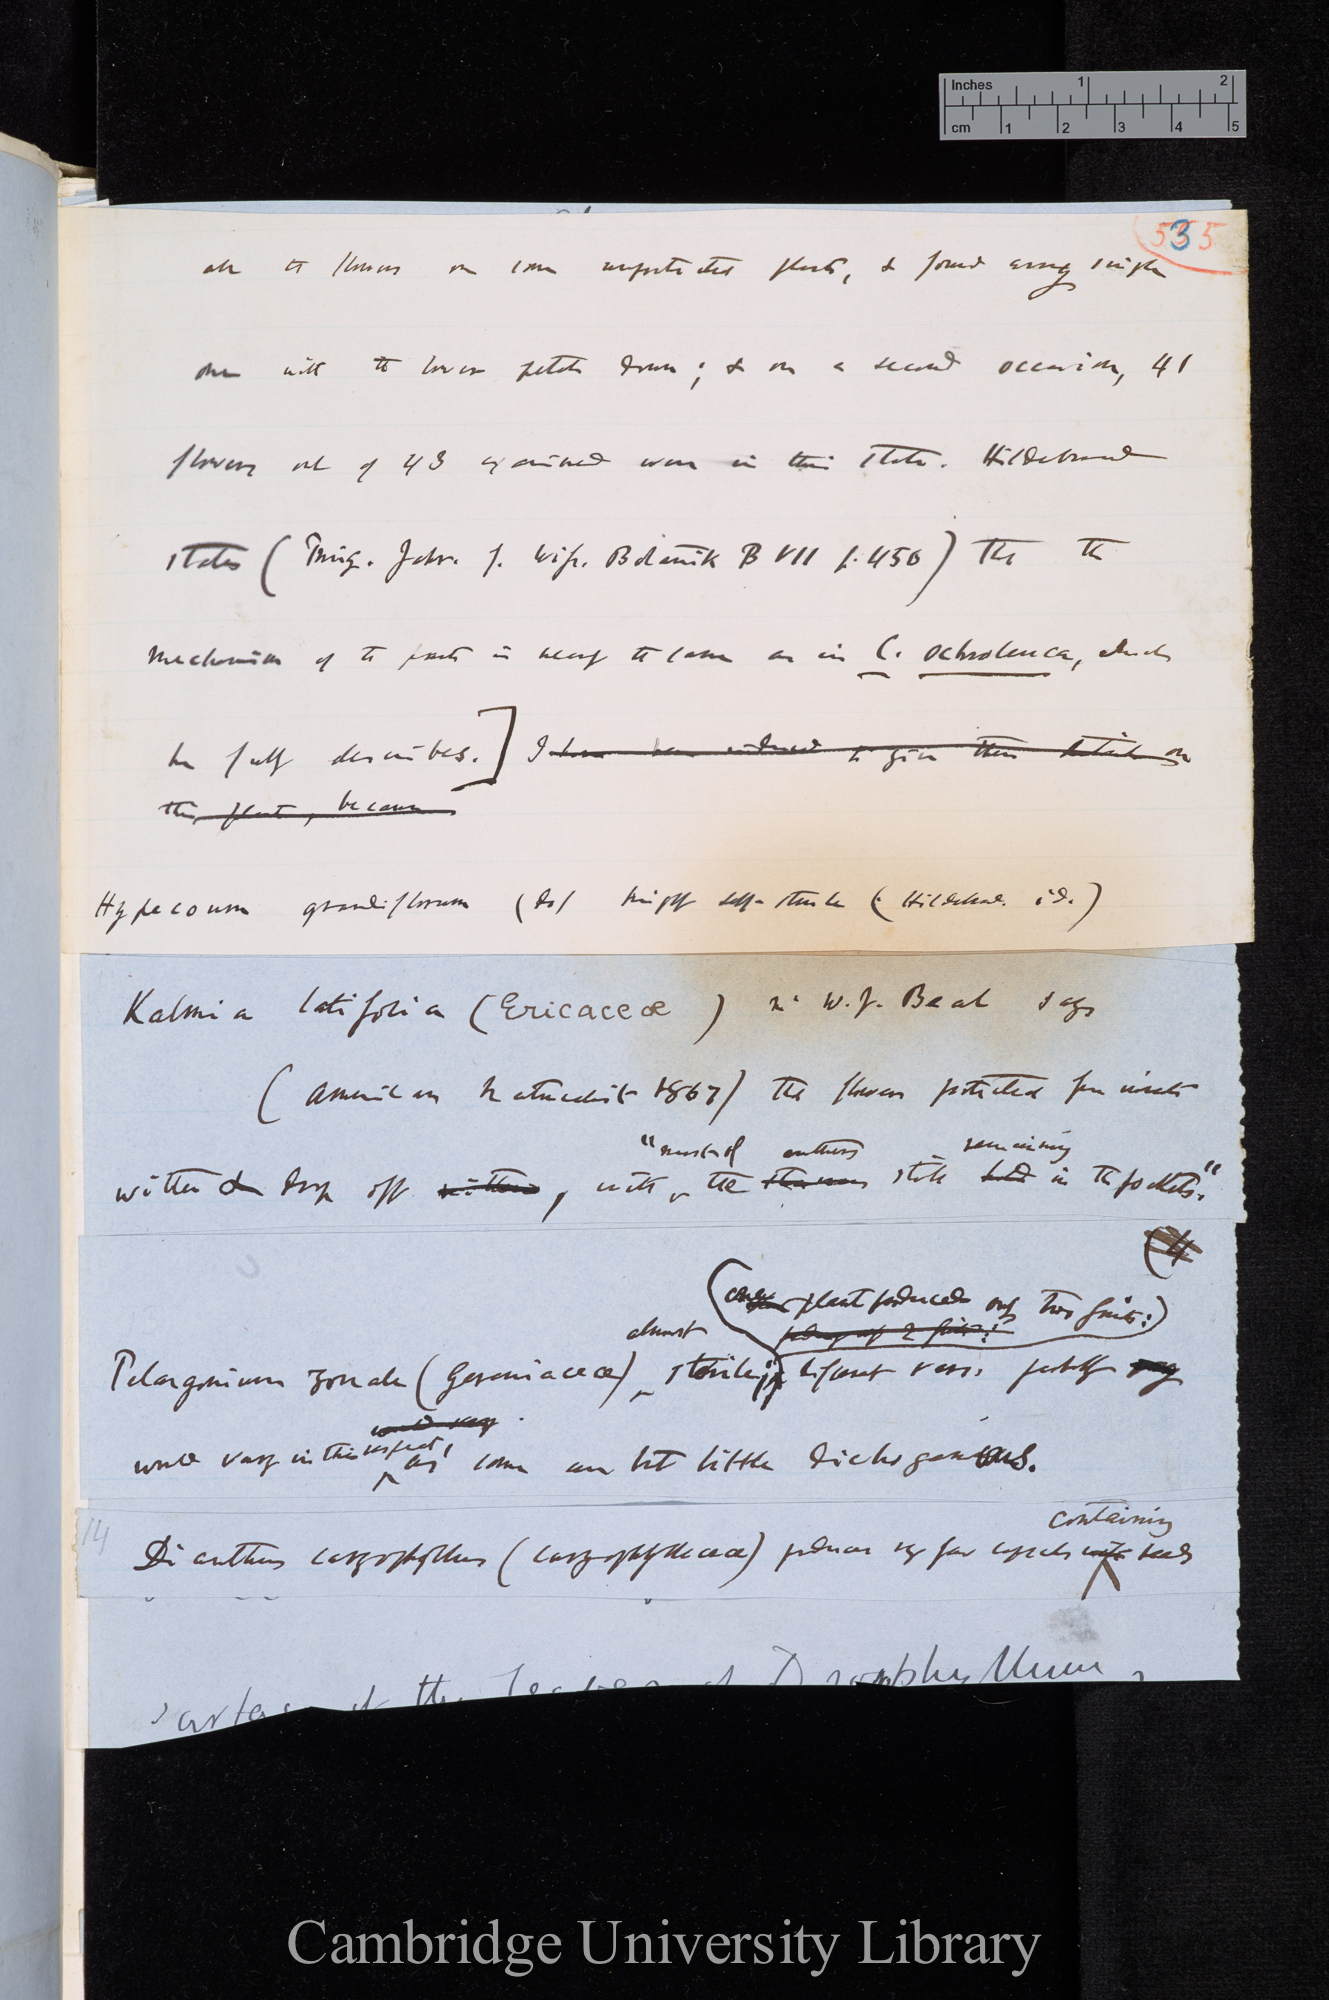 Inches 1 2
cm 1 2 3 4 5
535
all the flowers on some unprotected plants, & found every single
one with the lower petals down; & on a second occasion, 41
flowers out of 43 examined were in this state. Hildebrand
states (Pring. Jahr. f. wiss. Botanik B VII p. 450) that the
mechanism of the parts is nearly the same as in C. ochroleuca, which
he fully describes.] I have been induced to give these details on
this plant, because
Hypecoum grandiflorum highly self-sterile (Hildebrand. id.)
Kalmia latifolia (Ericaceæ) Mr W. J. Beal says
(American Naturalist 1867) that flowers protected from insects
"most of anthers remaining
wither & drop off wither, with the stamens still held in the pockets."
(4
(one plant produced only two fruits:)
almost
Pelargonium zonale (Geraniaceæ) sterile; different vars. probably vary
would vary
would vary in this respect, as some are but little dichogamous.
14
containing
Dianthus caryophyllus (Caryophylleaceæ) produces very few capsules with seeds
surface of the leaves of Drosophyllum,
Cambridge University Library